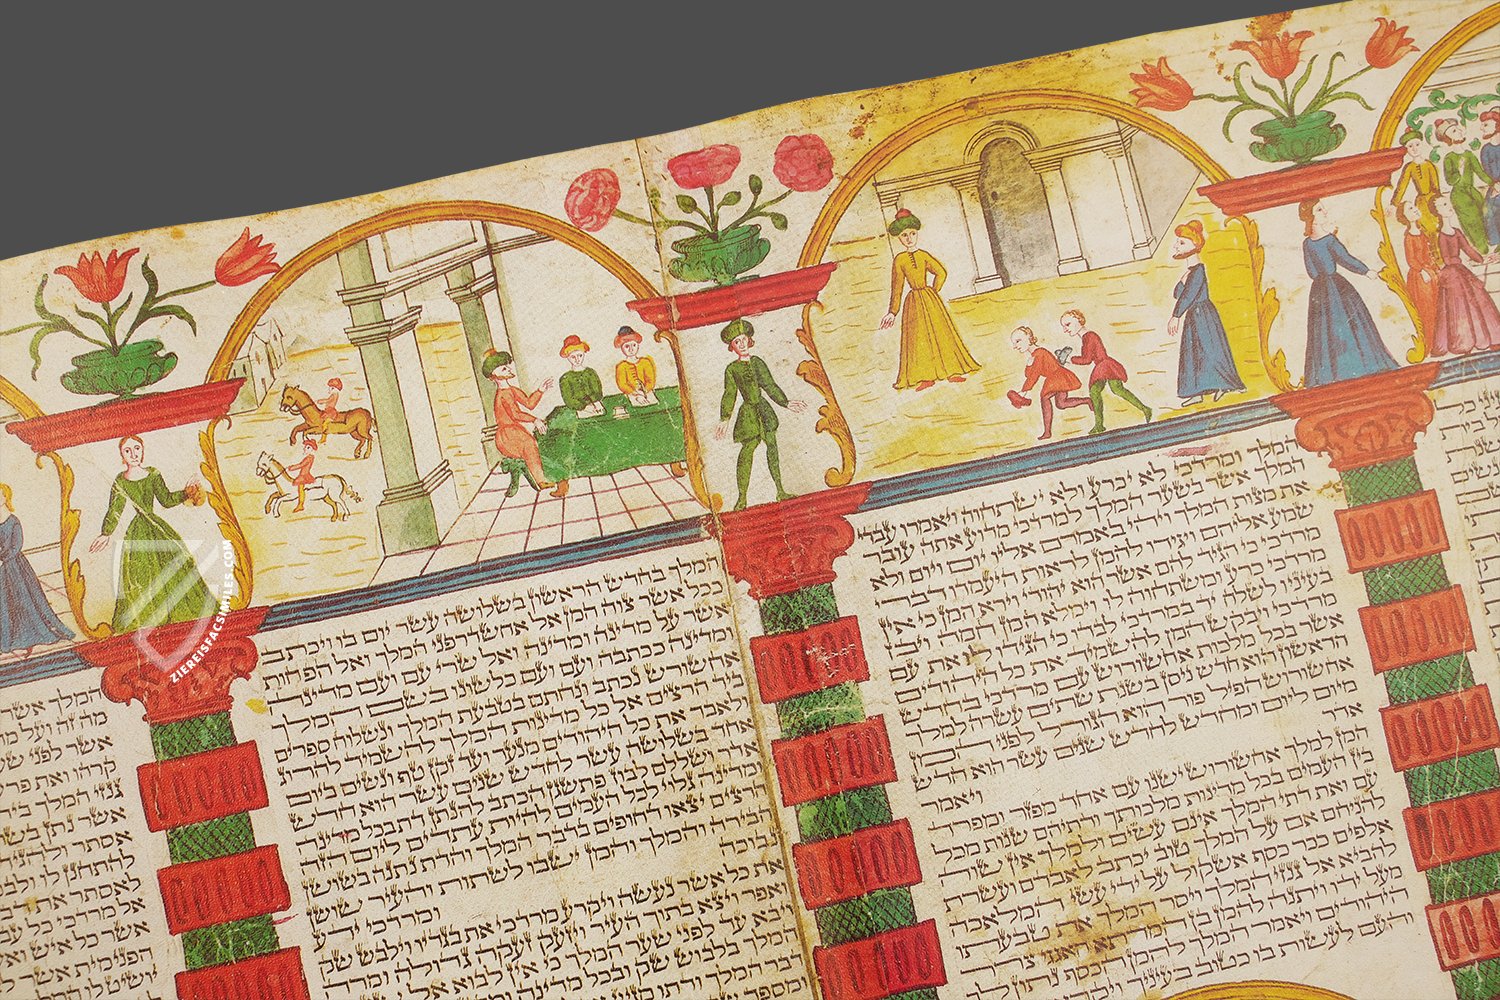 המלך ומרדכי לא יכרע ולא ישתחוה ויאמרו עבדי
המלך אשר בשער המלך למרדכי מדוע אתה עובר
את מצות המלך ויהי באמרם אליו יום ויום ולא
שמע אליהם ויגידו להמן לראות היעמדו דברי
מרדכי כי הגיד להם אשר הוא יהודי וירא המן כי אין
מרדכי כרע ומשתחוה לו וימלא המן חמה ויבז
בעיניו לשלח יד במרדכי לבדו כי הגידו לו את עם
מרדכי ויבקש המן להשמיד את כל היהודים
אשר בכל מלכות אחשורוש עם מרדכי בחדש
הראשון הוא חדש ניסן בשנת שתים עשרה למלך
אחשורוש הפיל פור הוא הגורל לפני המן
מיום ליום ומחדש לחדש שנים עשר הוא חדש
אדר ויאמר
המן למלך אחשורוש ישנו עם אחד מפזר ומפורד
בין העמים בכל מדינות מלכותך ודתיהם שנות מכל
עם ואת דתי המלך אינם עשים ולמלך אין שוה
להניחם אם על המלך טוב יכתב לאבדם ועשרת
אלפים ככר כסף אשקול על ידי עשי המלאכה
להביא אל גנזי המלך ויסר המלך את טבעתו
מעל ידו ויתנה להמן בן המדתא האגגי צרר
היהודים ויאמר המלך להמן הכסף נתון לך
והעם לעשות בו כטוב בעיניך
המלך בחדש הראשון בשלושה עשר יום בו ויכתב
ככל אשר צוה המן אל אחשדרפני המלך ואל הפחות
אשר על מדינה ומדינה ואל שרי עם ועם מדינה
ומדינה ככתבה ועם ועם כלשונו בשם המלך
אחשורש נכתב ונחתם בטבעת המלך ונשלוח ספרים
ביד הרצים אל כל מדינות המלך להשמיד להרוג
ולאבד את כל היהודים מנער ועד זקן טף ונשים ביום
אחד בשלושה עשר לחדש שנים עשר הוא חדש
אדר ושללם לבוז פתשגן הכתב להנתן דת בכל מדינה
ומדינה גלוי לכל העמים להיות עתדים ליום הזה
הרצים יצאו דחופים בדבר המלך והדת נתנה בשושן
הבירה והמלך והמן ישבו לשתות והעיר שושן
נבוכה ומרדכי ידע
את כל אשר נעשה ויקרע מרדכי את בגדיו וילבש שק
ואפר ויצא בתוך העיר ויזעק זעקה גדולה ומרה
ויבא עד לפני שער המלך כי אין לבוא אל
המלך בלבוש שק ובכל מדינה ומדינה
דבר המלך ודתו
המלך אשר
מה זה ועל מה
אשר לפני
קרהו ואת
גנזי המלך
אשר נתן
אסתר ולהגיד
להתחנן לו
לאסתר את
אל מרדכי כל
אשר כל איש
הפנימית אשר
יושיט לו המלך
ZIEREISFACSIMILES.COM